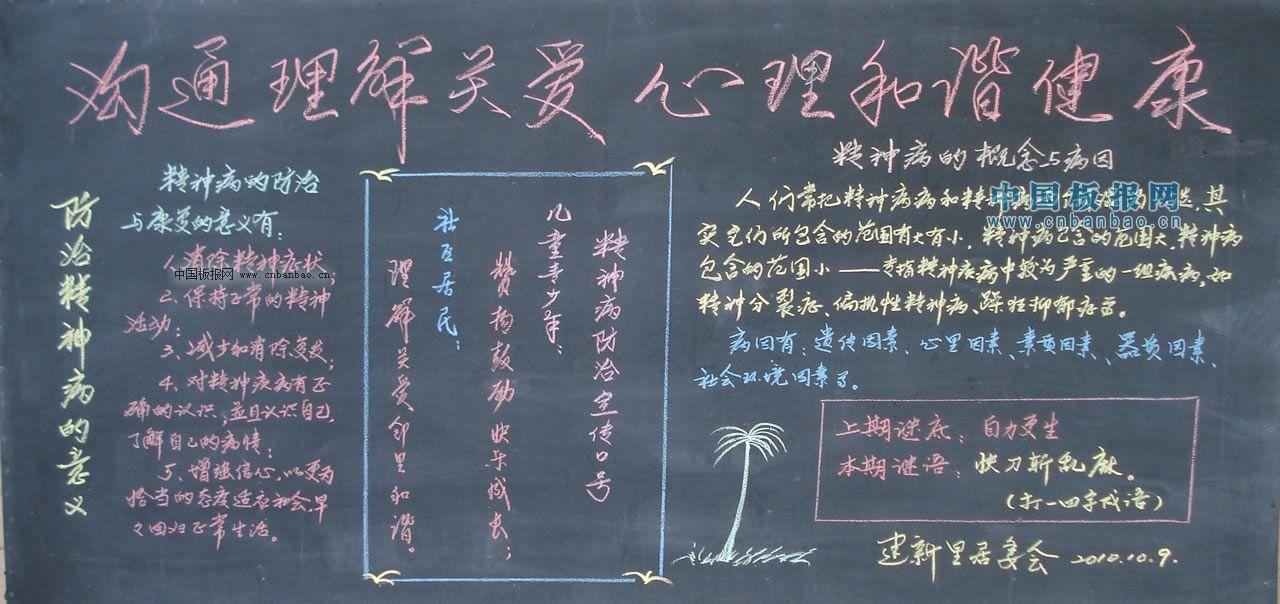 沟通理解关爱 心理和谐健康
防治精神病的意义
精神病的防治
与康复的意义有:
1、消除精神症状,
中国板报网 www.cnbanbao.cn
2、保持正常的精神
活动;
3、减少和消除复发,
4、对精神疾病有正
确的认识,并且认识自己,
了解自己的病情;
5、增强信心,以更为
恰当的态度适应社会,早
々回归正常生活。
精神病防治宣传口号
儿童青少年:
赞扬鼓励快乐成长;
社区居民:
理解关爱邻里和谐。
精神病的概念与病因
人们常把精神疾病和精神病
其
中国板报网
www.cnbanbao.cn
实它们所包含的范围有大有小,精神病包含的范围大,精神病
包含的范围小——专指精神疾病中较为严重的一组疾病,如
精神分裂症、偏执性精神病、躁狂抑郁症等。
病因有:遗传因素、心里因素、素质因素、器质因素、
社会环境因素等。
上期谜底:自力更生
本期谜语:快刀斩乱麻。
(打一四字成语)
建新里居委会 2010.10.9.